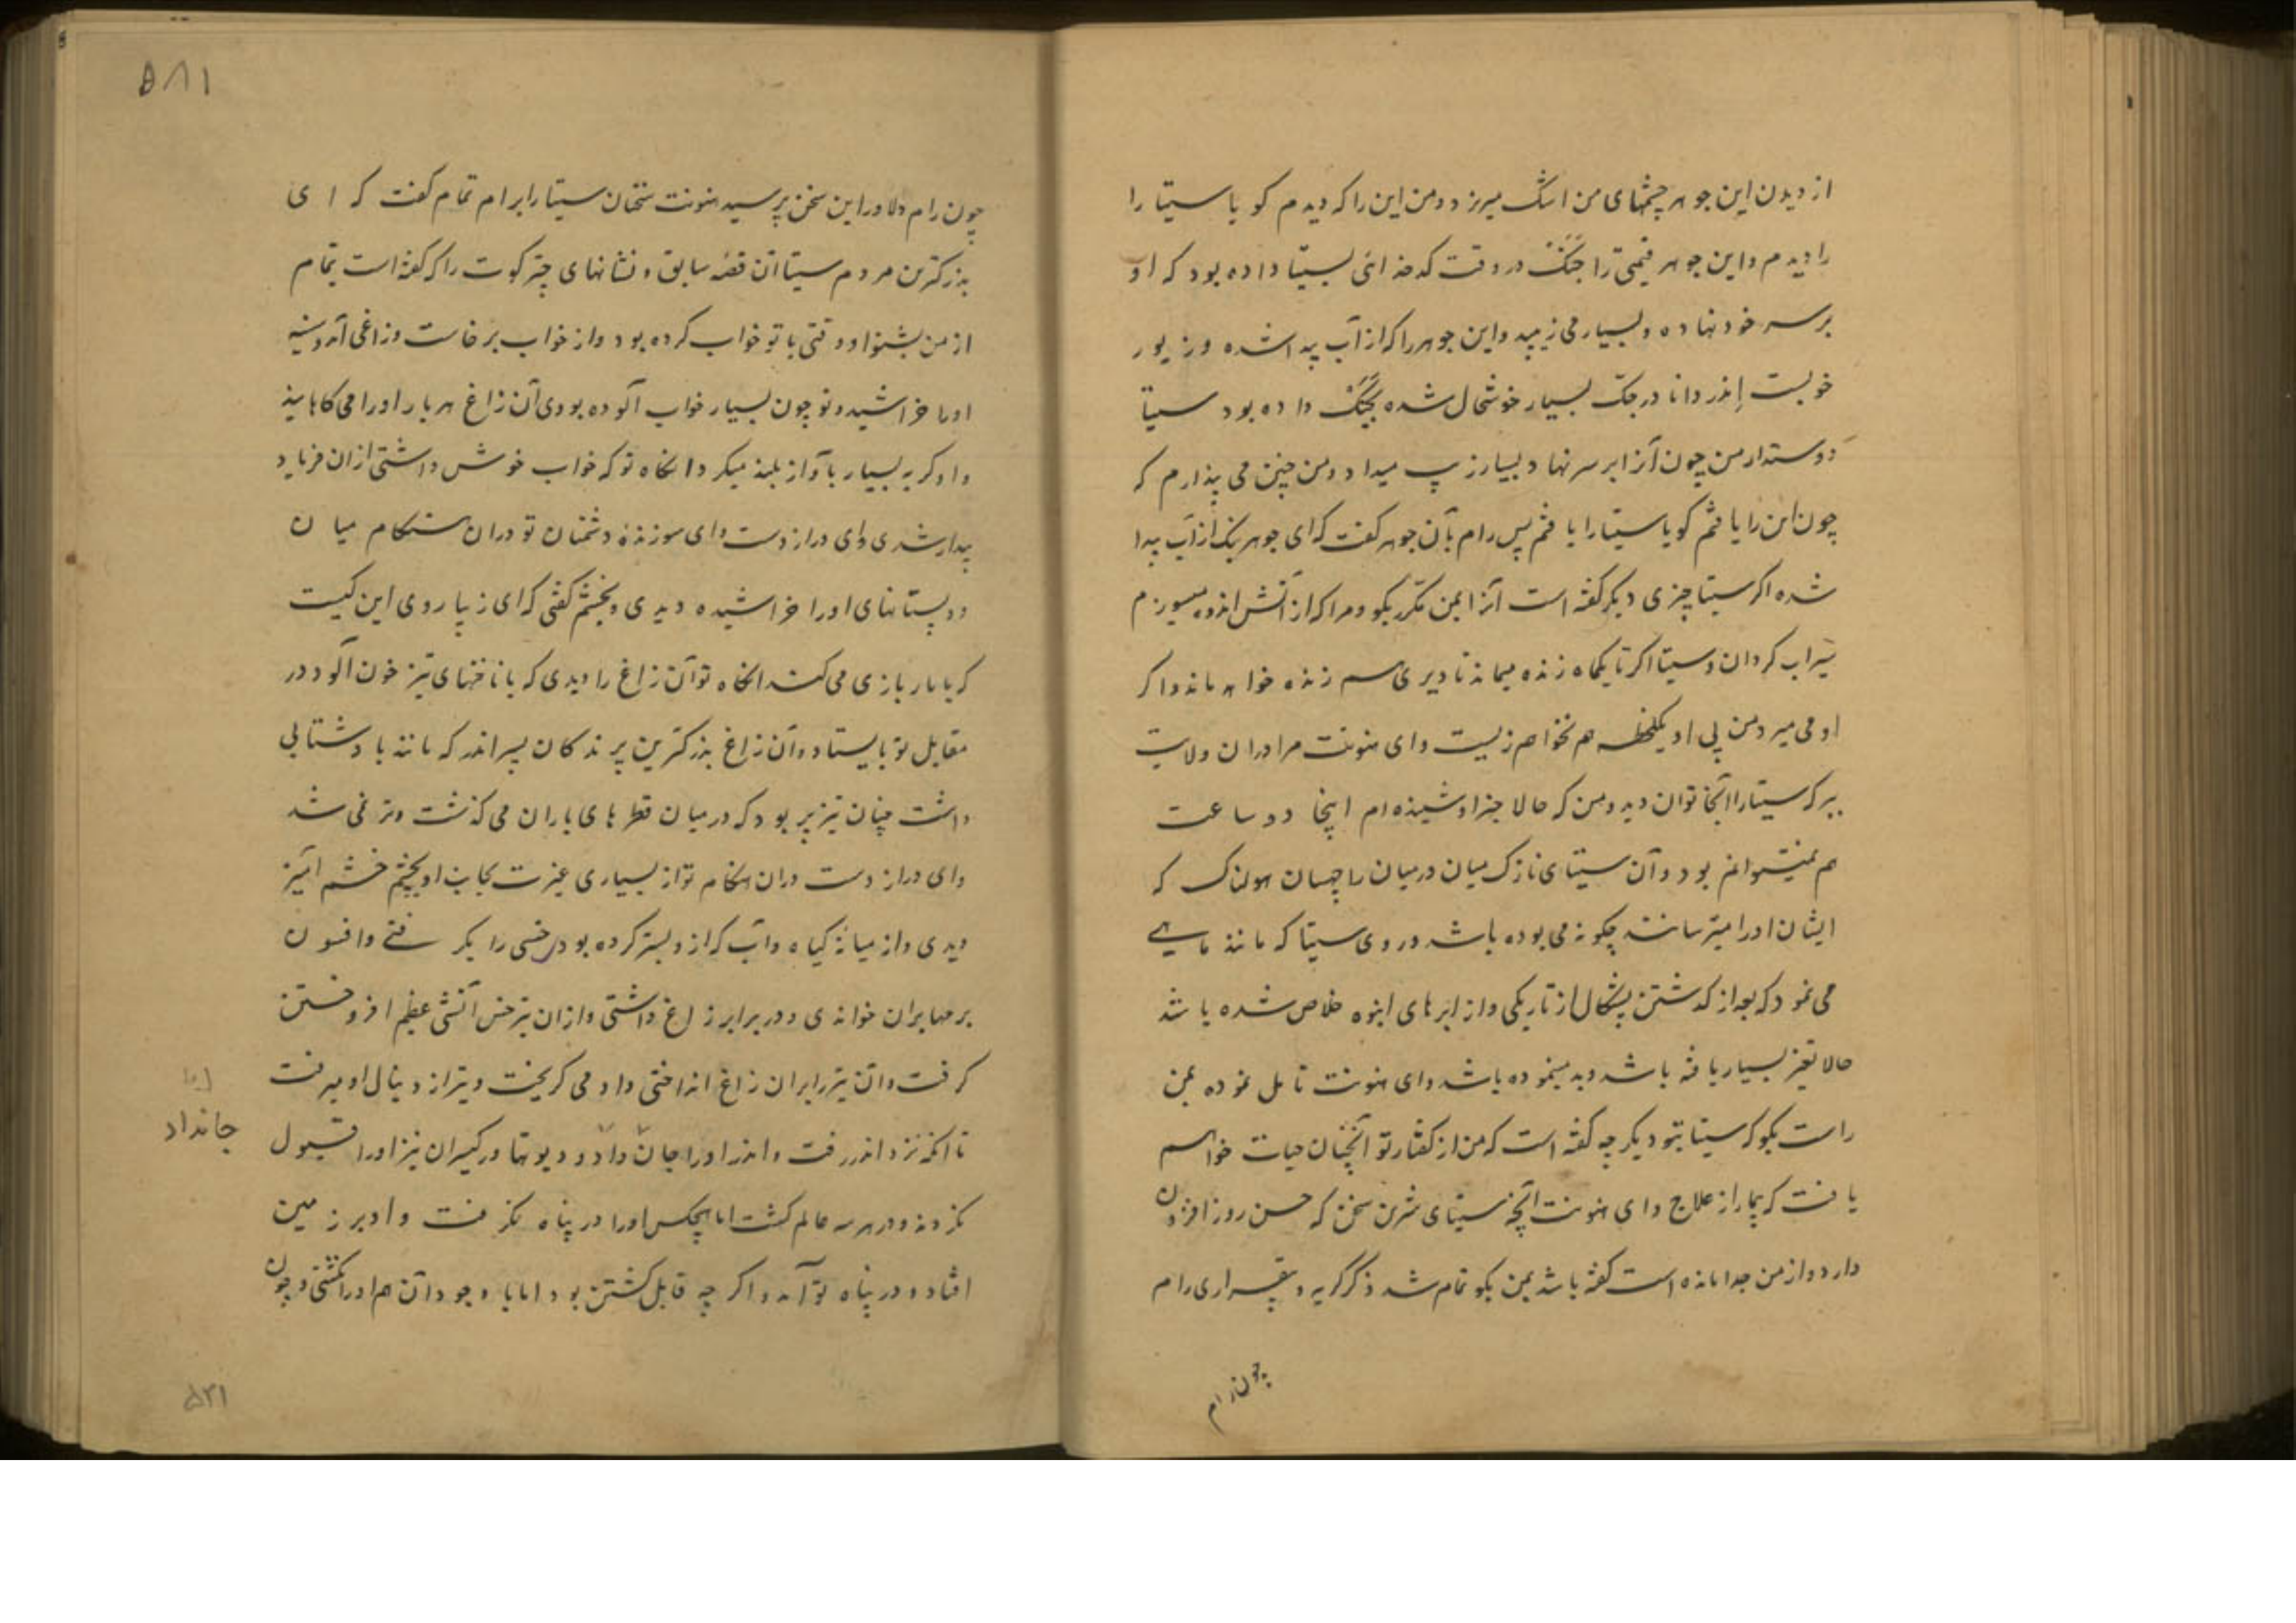 از دیدن این جوهر چشمهای من اشک میریزد و من این را که دیدم گویا سیتا را
را دیدم و این جوهر قیمتی را جنک در وقت کدخدائی بسیتا داده بود که او
بر سر خود نهاده و بسیار می زیبید و این جوهر را که از آب پیدا شده و زیور
خوبست اندر دانا در جک بسیار خوشحال شده بجنک داده بود سیتا
دوستدار من چون آنرا بر سر نهاد بسیار زیب میداد و من چنین می پندارم که
چون این را یافتم گویا سیتا را یافتم پس رام بآن جوهر گفت که ای جوهریکه از آب پیدا
شده اگر سیتا چیزی دیگر گفته است آنرا بمن مکرر بگو و مرا که از آتش اندوه میسوزم
سیراب گردان و سیتا اگر تا یکماه زنده میماند تا دیری سم زنده خواهد ماند و اگر
او می میرد من پی او یکلحظه هم نخواهم زیست و ای هنونت مرا دران ولایت
ببر که سیتا را آنجا توان دید و من که حالا خبر او شنیده ام اینجا دو ساعت
هم نمیتوانم بود و آن سیتای نازک میان در میان راچهسان هولناک که
ایشان او را میترسانند چگونه می بوده باشد و روی سیتا که مانند ماهی
می نمود که بعد از گذشتن پشکال از تاریکی و از ابرهای انبوه خلاص شده باشد
حالا تغیر بسیار یافته باشد و بد مینموده باشد و ای هنونت تامل نموده بمن
راست بگو که سیتا بتو دیگر چه گفته است که من از گفتار تو آنچنان حیات خواهم
یافت که بیمار از علاج و ای هنونت آنچه سیتای شیرین سخن که حسن روز افزون
دارد و از من جدا مانده است گفته باشد بمن بگو تمام شد ذکر گریه و بیقراری رام
چون رام
۵۸۱
چون رام دلاور این سخن پرسید هنونت سخنان سیتا را برام تمام گفت که ای
بزرگترین مردم سیتا آن قصه سابق و نشانهای چترکوت را که گفته است تمام
از من بشنو او وقتی با تو خواب کرده بود و از خواب برخاست و زاغی آمد و سینه
او را خراشید و تو چون بسیار خواب آلوده بودی آن زاغ هر بار او را می کاهانید
و او گریه بسیار بآواز بلند میکرد آنگاه تو که خواب خوش داشتی ازان فریاد
بیدار شدی و ای دراز دست و ای سوزنده دشمنان تو دران هنگام میان
دو پستانهای او را خراشیده دیدی و بخشم گفتی که ای زیبا روی این کیست
که با مار بازی می کند آنگاه تو آن زاغ را دیدی که با ناخنهای تیز خون آلود در
مقابل تو بایستاد و آن زاغ بزرگترین پرندگان پسر اندر که مانند باد شتابی
داشت چنان تیزپر بود که درمیان قطرهای باران می گذشت و تر نمی شد
و ای دراز دست دران هنگام تو از بسیاری غیرت بجانب او بچشم خشم آمیز
دیدی و از میانه گیاه دآب که ازو بستر کرده بود خسی را بگرفتی و افسون
برمها بران خواندی و در برابر زاغ داشتی و ازان تیرخس آتشی عظیم افروختن
گرفت و آن تیر را بران زاغ انداختی و او می گریخت و تیر از دنبال او میرفت
تا آنکه نزد اندر رفت و اندر او را جان داد و دیوتها و رکیسران نیز او را قبول
جانداد
نکردند و در هر سه عالم گشت اما هیچکس او را در پناه نگرفت و او بر زمین
افتاد و در پناه تو آمد و اگر چه قابل کشتن بود اما با وجود آن هم او را نکشتی و چون
۵۳۱